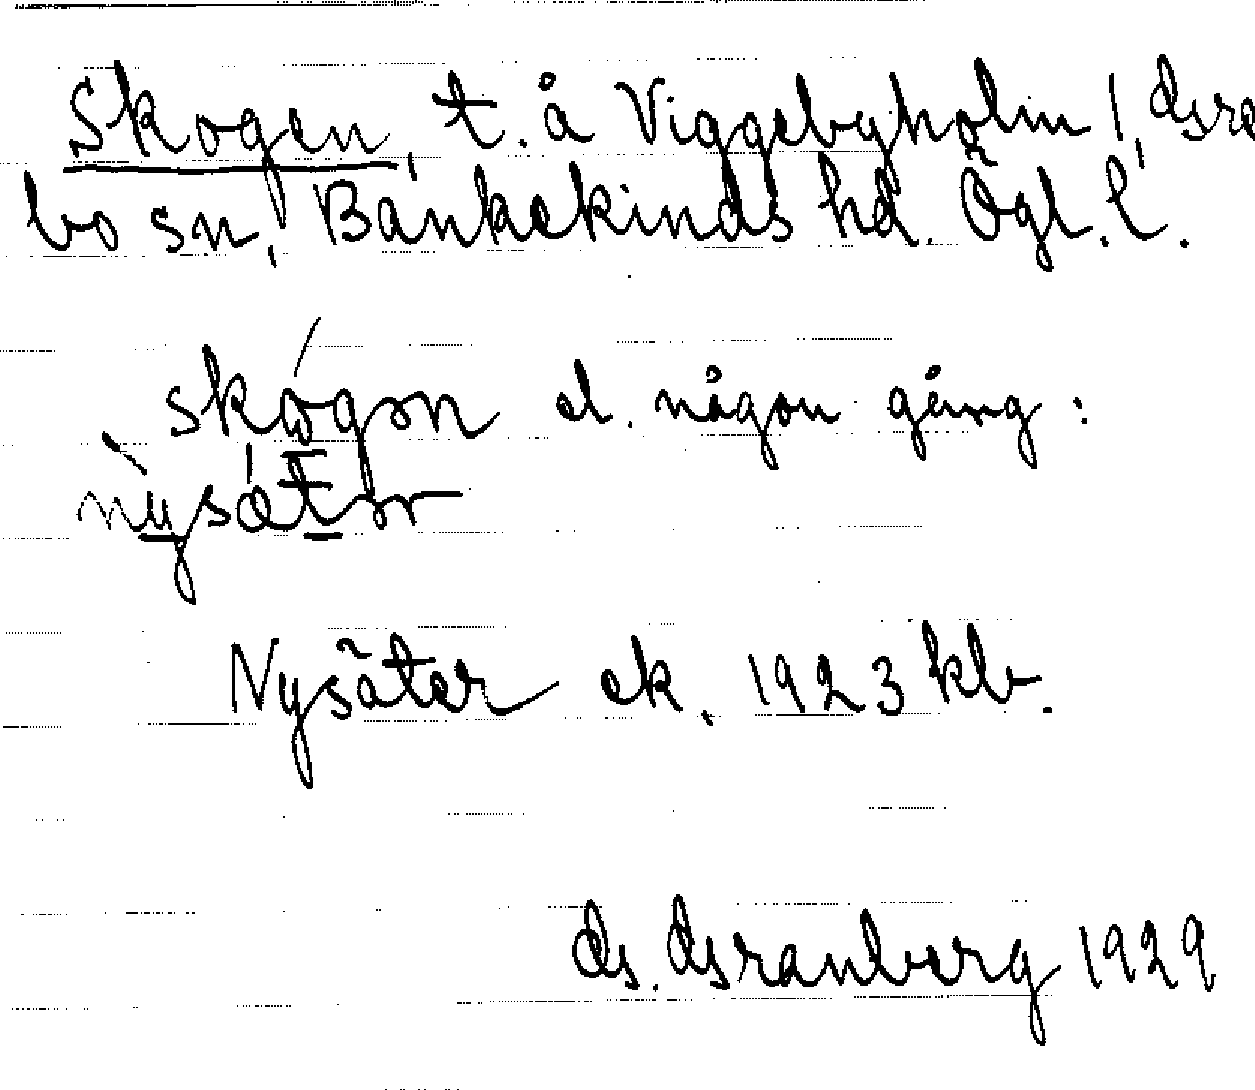 Skogen, t. å Viggebyholm 1, Gre
bo sn, Bankekinds hd. Ögl. l.
skógən el. någon gång:
nỳsätər
Nysäter ek. 1923 kb.
G. Granberg 1929